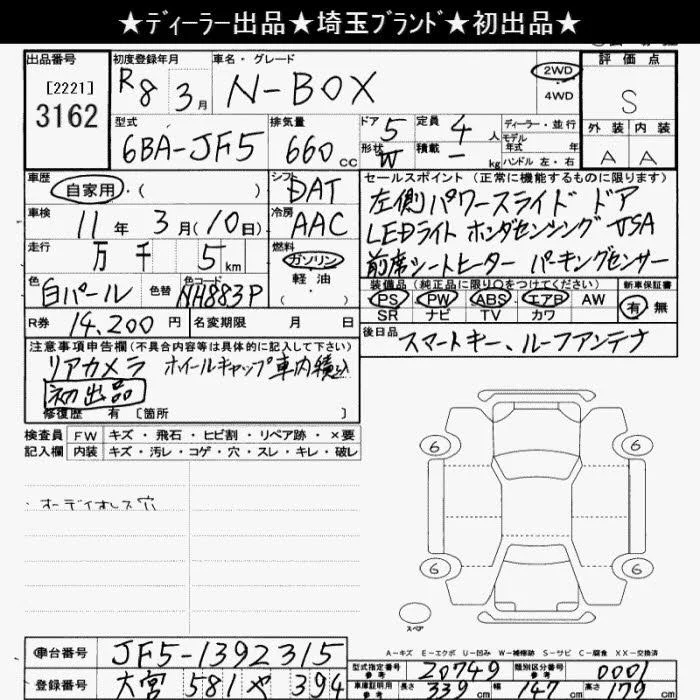 ★ディーラー出品★埼玉ブランド★初出品★
出品番号 初度登録年月 車名・グレード 評価点
[2221] 3162 R8年 3月 N-BOX 2WD 4WD S
型式 排気量 ドア 5 定員 4人 ディーラー・並行 外装 内装
6BA-JF5 660cc 形状 W 積載 -kg モデル年式 年 ハンドル 左・右 A A
車歴 自家用・( ) シフト DAT セールスポイント(正常に機能するものに限ります)
車検 11年 3月(10日) 冷房 AAC 左側パワースライドドア
走行 万 千 5km 燃料 ガソリン 軽油 ・ LEDライト ホンダセンシング USA
前席シートヒーター パーキングセンサー
色 白パール 色替 色コード NH883P 装備品(純正品に限り○をつけてください) 新車保証書
PS PW ABS エアB AW 有 無
SR ナビ TV カワ
R券 14,200円 名変期限 月 日 後日品 スマートキー、ルーフアンテナ
注意事項申告欄(不具合内容等は具体的に記入して下さい)
リアカメラ ホイールキャップ車内積込
初出品
修復歴 有 [箇所 ]
検査員 FW キズ・飛石・ヒビ割・リペア跡・×要
記入欄 内装 キズ・汚レ・コゲ・穴・スレ・キレ・破レ
オーディオレス穴
6 6
6 6
スペア
A-キズ E-エクボ U-凹み W-補修跡 S-サビ C-腐食 XX-交換済
車台番号 JF5-1392315
型式指定番号 参考 20749 類別区分番号 参考 0001
登録番号 大宮 581 や 394
車庫証明用 参考 長さ 339cm 幅 147cm 高さ 179cm